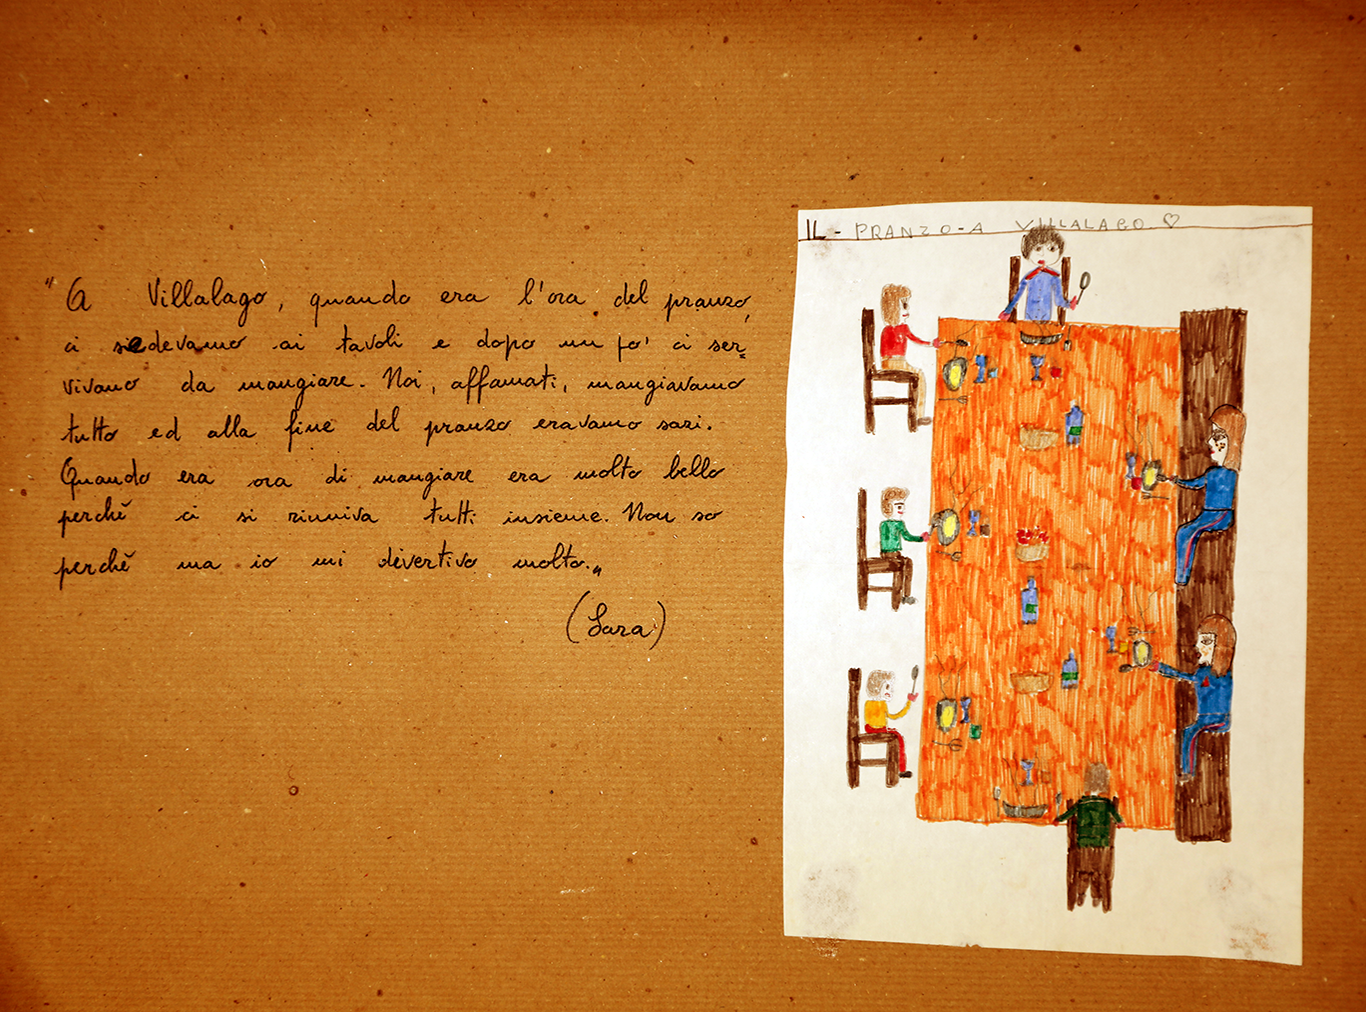 "A Villalago, quando era l'ora del pranzo,
ci siedevamo ai tavoli e dopo un po' ci ser=
vivano da mangiare. Noi, affamati, mangiavamo
tutto ed alla fine del pranzo eravamo sazi.
Quando era ora di mangiare era molto bello
perchè ci si riuniva tutti insieme. Non so
perchè ma io mi divertivo molto."
(Sara)
IL - PRANZO - A VILLALAGO ♡